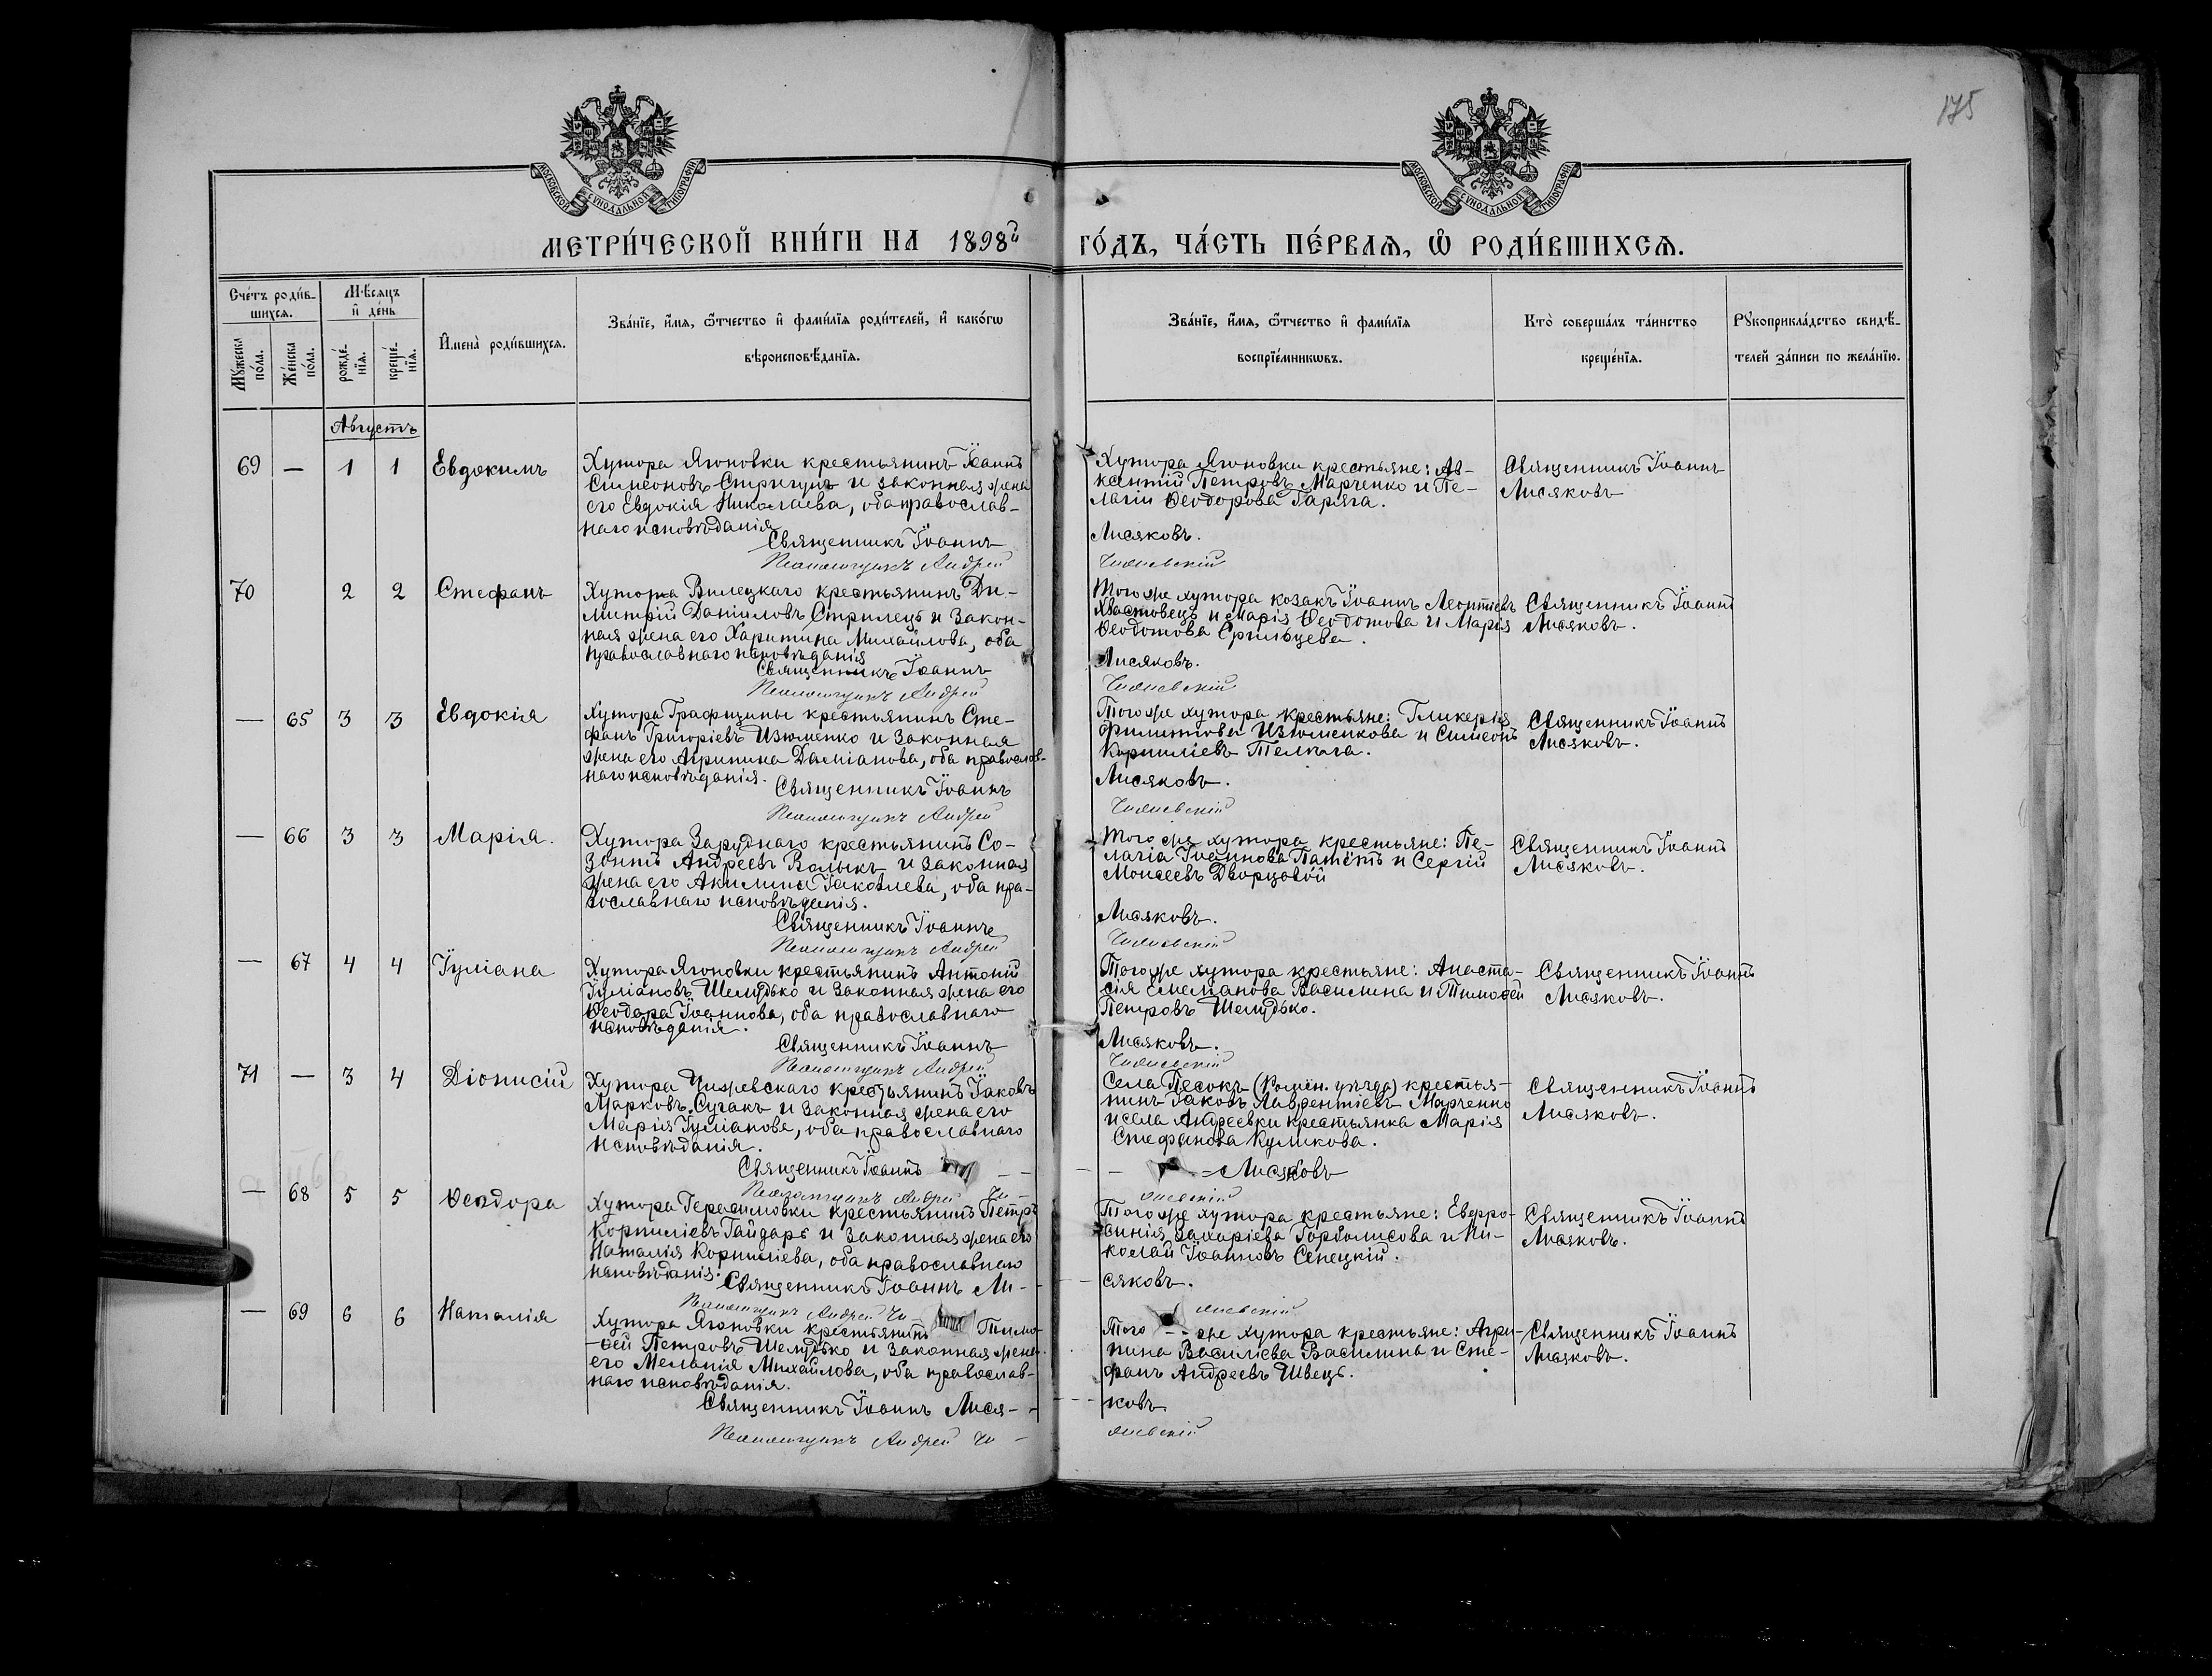 175
МОСКОВСКОЙ СѴНОДАЛЬНОЙ ТИПОГРАФІИ
МОСКОВСКОЙ СѴНОДАЛЬНОЙ ТИПОГРАФІИ
МЕТРИ́ЧЕСКОЙ КНИ́ГИ НА 1898й ГО́ДЪ, ЧА́СТЬ ПЕ́РВАѦ, Ѿ РОДИ́ВШИХСѦ.
Сче́тъ роди́в-
шихсѧ.
Мꙋжеска
по́ла.
Же́нска
по́ла.
Мѣ́сѧцъ
и҆ де́нь
рожде́-
нїѧ.
креще́-
нїѧ.
И҆мена̀ роди́вшихсѧ.
Зва́нїе, и҆́мѧ, ѻ҆́тчество и҆ фами́лїѧ роди́телей, и҆ како́гѡ
вѣроисповѣ́данїѧ.
Зва́нїе, и҆́мѧ, ѻ҆́тчество и҆ фами́лїѧ
воспрїе́мникѡвъ.
Кто̀ соверша́лъ та́инство
креще́нїѧ.
Рꙋкоприкла́дство свидѣ́-
телей за́писи по жела́нїю.
Августъ
69 — 1 1 Евдокимъ
Хутора Ягоновки крестьянинъ Іоаннъ
Симеоновъ Стригунъ и законная жена
его Евдокія Николаева, оба православ-
наго исповѣданія
Священникъ Іоаннъ
Псаломщикъ Андрей
Хутора Ягоновки крестьяне: Ав-
ксентій Петровъ Марченко и Пе-
лагія Ѳеодорова Гаряга.
Лисяковъ.
Священникъ Іоаннъ
Лисяковъ
70 2 2 Стефанъ
Хутора Вилецкаго крестьянинъ Ди-
митрій Даніиловъ Стрилецъ и закон-
ная жена его Харитина Михайлова, оба
православнаго исповѣданія
Священникъ Іоаннъ
Псаломщикъ Андрей
Того же хутора козакъ Іоаннъ Леонтіевъ
Хвастовецъ и Марія Ѳеодотова и Марія
Ѳеодотова
Лисяковъ.
Священникъ Іоаннъ
Лисяковъ.
— 65 3 3 Евдокія
Хутора Графщины крестьянинъ Сте-
фанъ Григоріевъ Изюменко и законная
жена его Агрипина Даміанова, оба православ-
наго исповѣданія.
Священникъ Іоаннъ
Псаломщикъ Андрей
Того же хутора крестьяне: Гликерія
Филиппова Изюменкова и Симеонъ
Корниліевъ Телпьга.
Лисяковъ.
Священникъ Іоаннъ
Лисяковъ.
— 66 3 3 Марія.
Хутора Заруднаго крестьянинъ Со-
зонтъ Андреевъ Валыкъ и законная
жена его Акилина Іаковлева, оба пра-
вославнаго исповѣданія.
Священникъ Іоаннъ
Псаломщикъ Андрей
Того же хутора крестьяне: Пе-
лагія Іоаннова и Сергій
Моисеевъ Дворцовой
Лисяковъ.
Священникъ Іоаннъ
Лисяковъ.
— 67 4 4 Іуліана
Хутора Ягоновки крестьянинъ Антоній
Іуліановъ Шелудько и законная жена его
Ѳеодора Іоаннова, оба православнаго
исповѣданія.
Священникъ Іоаннъ
Псаломщикъ Андрей
Того же хутора крестьяне: Анаста-
сія Емеліанова Василина и Тимоѳей
Петровъ Шелудько.
Лисяковъ.
Священникъ Іоаннъ
Лисяковъ.
71 — 3 4 Діонисій
Хутора Чижевскаго крестьянинъ Іаковъ
Марковъ Сугакъ и законная жена его
Марія Іуліанова, оба православнаго
исповѣданія.
Священникъ Іоаннъ
Псаломщикъ Андрей
Села Песокъ (Ромен. уѣзда) крестья-
нинъ Іаковъ Лаврентіевъ Марченко
и села Андреевки крестьянка Марія
Стефанова Куликова.
Лисяковъ
Священникъ Іоаннъ
Лисяковъ.
— 68 5 5 Ѳеодора
Хутора Герасимовки крестьянинъ Петръ
Корниліевъ Гайдаръ и законная жена его
Наталія Корниліева, оба православнаго
исповѣданія.
Священникъ Іоаннъ Ли-
Псаломщикъ Андрей
Того же хутора крестьяне: Евфро-
синія Захаріева Горболисова и Ни-
колай Іоанновъ Сенецкій.
сяковъ.
Священникъ Іоаннъ
Лисяковъ.
— 69 6 6 Наталія
Хутора Ягоновки крестьянинъ Тимо-
ѳей Петровъ Шелудько и законная жена
его Меланія Михайлова, оба православ-
наго исповѣданія.
Священникъ Іоаннъ Лися-
Псаломщикъ Андрей
Того -- же хутора крестьяне: Агри-
пина Василіева Василина и Сте-
фанъ Андреевъ Швецъ.
ковъ
Священникъ Іоаннъ
Лисяковъ.